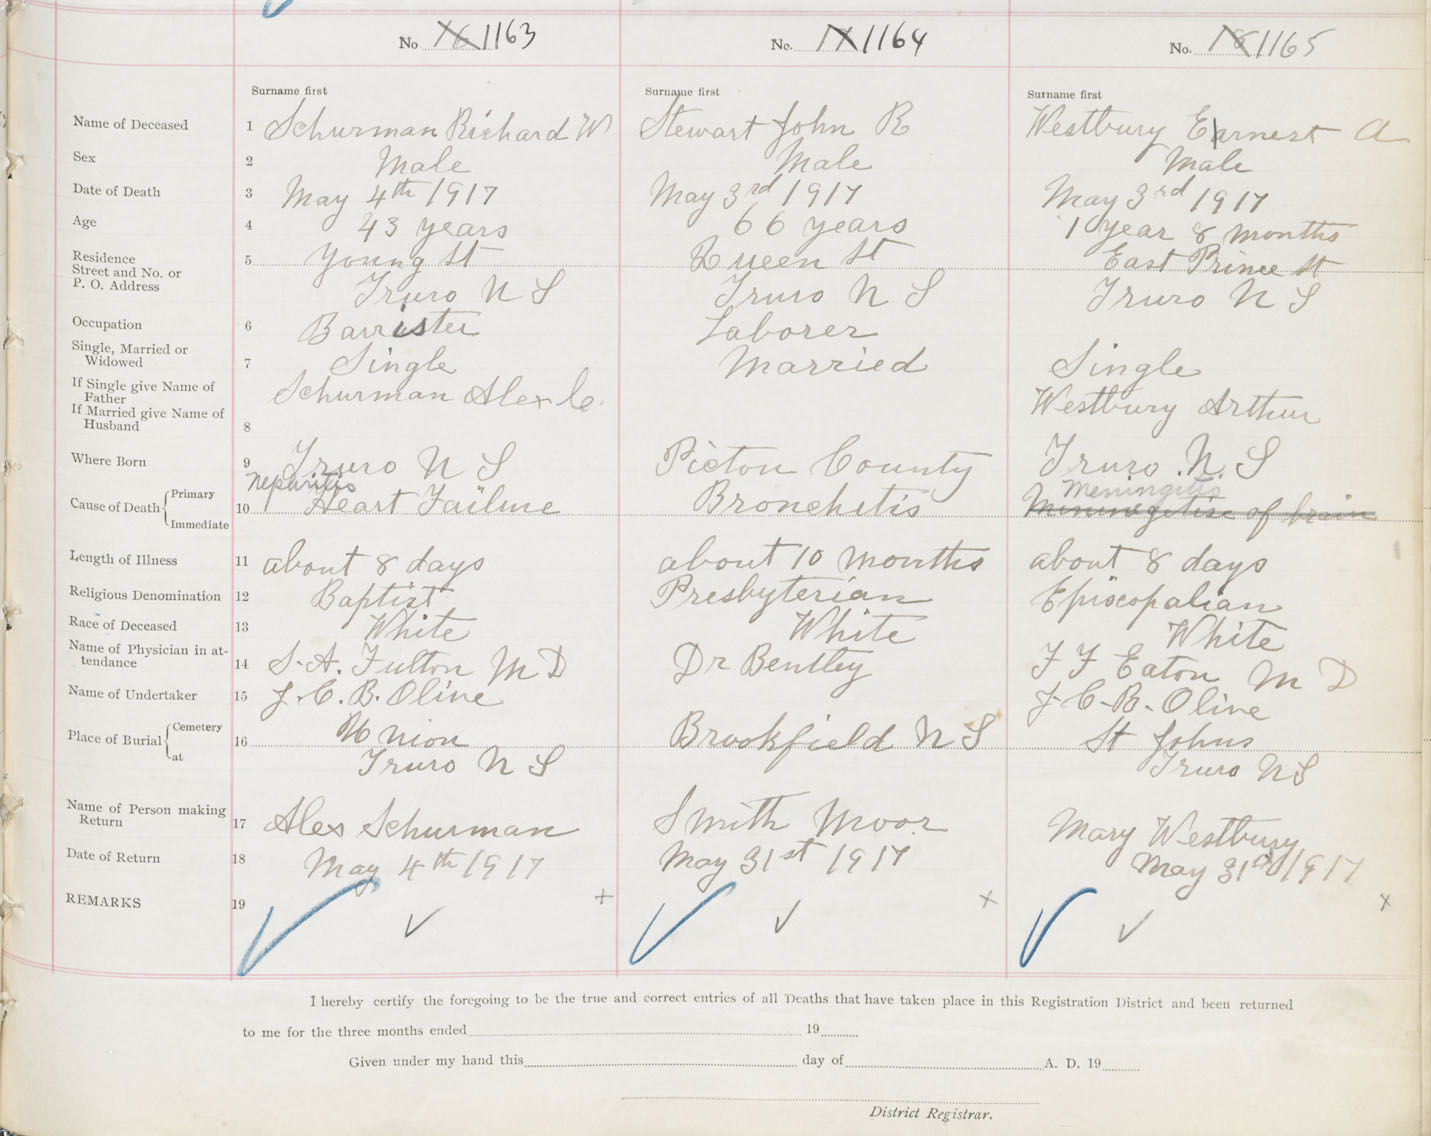 No. 16 1163
No. 17 1164
No. 18 1165
Surname first
Surname first
Surname first
Name of Deceased 1 Schurman Richard W Stewart John R Westbury Earnest A
Sex 2 Male Male Male
Date of Death 3 May 4th 1917 May 3rd 1917 May 3rd 1917
Age 4 43 years 66 years 1 year 8 months
Residence
Street and No. or 5 Young St Queen St East Prince St
P. O. Address Truro N S Truro N S Truro N S
Occupation 6 Barrister Laborer
Single, Married or
Widowed 7 Single Married Single
If Single give Name of
Father Schurman Alex C. Westbury Arthur
If Married give Name of
Husband 8
Where Born 9 Truro N S Pictou County Truro N. S
Nephritis Meningitis
Cause of Death Primary Immediate 10 Heart Failure Bronchitis of brain
Length of Illness 11 about 8 days about 10 months about 8 days
Religious Denomination 12 Baptist Presbyterian Episcopalian
Race of Deceased 13 White White White
Name of Physician in at-
tendance 14 S. A. Fulton M D Dr Bentley F F Eaton M D
Name of Undertaker 15 J. C. B. Olive J. C. B. Olive
Place of Burial Cemetery at 16 Union Brookfield N S St Johns
Truro N S Truro N S
Name of Person making
Return 17 Alex Schurman Smith Moor Mary Westbury
Date of Return 18 May 4th 1917 May 31st 1917 May 31st 1917
REMARKS 19
I hereby certify the foregoing to be the true and correct entries of all Deaths that have taken place in this Registration District and been returned
to me for the three months ended 19
Given under my hand this day of A. D. 19
District Registrar.